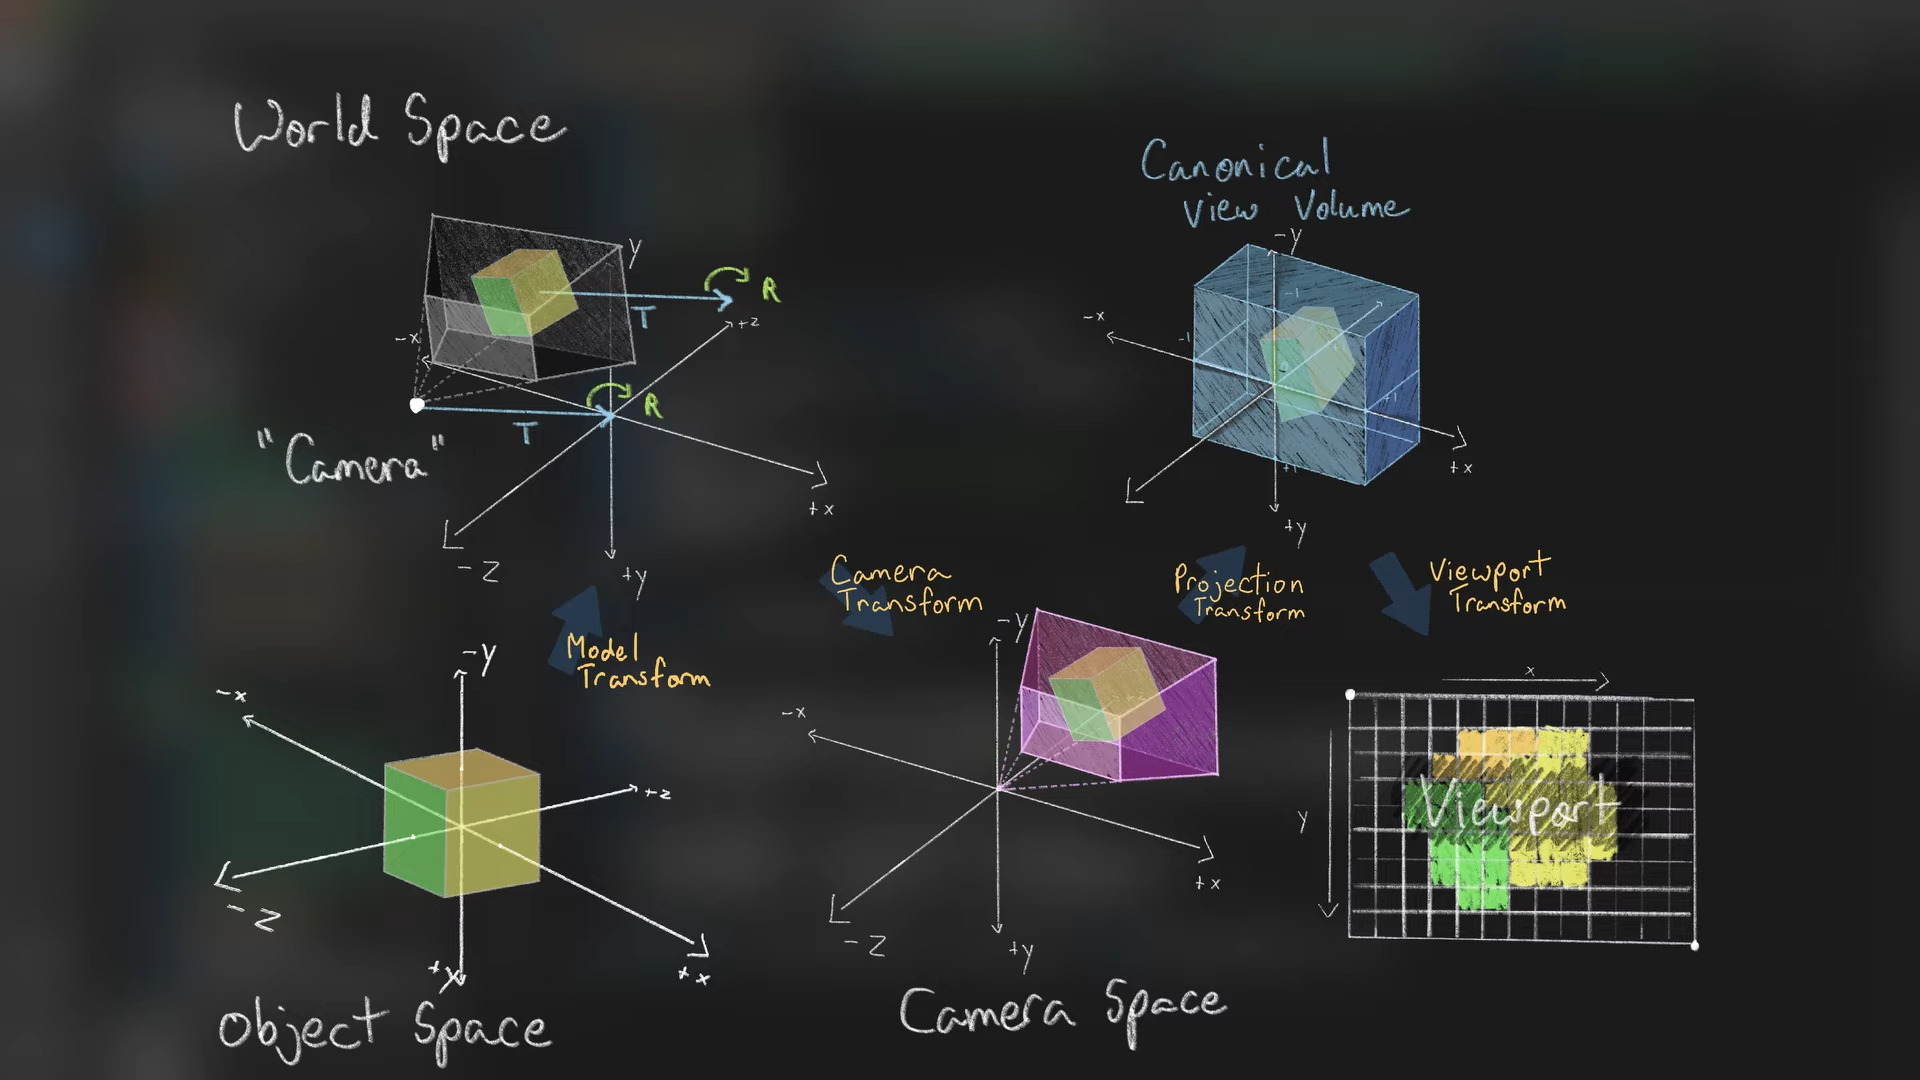 World Space
y
R
T
+z
-x
R
T
"Camera"
+x
-z
+y
Canonical
View Volume
-y
-x
-1
-1
+1
+1
+x
+y
Model
Transform
Camera
Transform
Projection
Transform
Viewport
Transform
-y
-x
+z
-z
+y
+x
Object Space
-y
-x
+x
-z
+y
Camera Space
x
y
Viewport